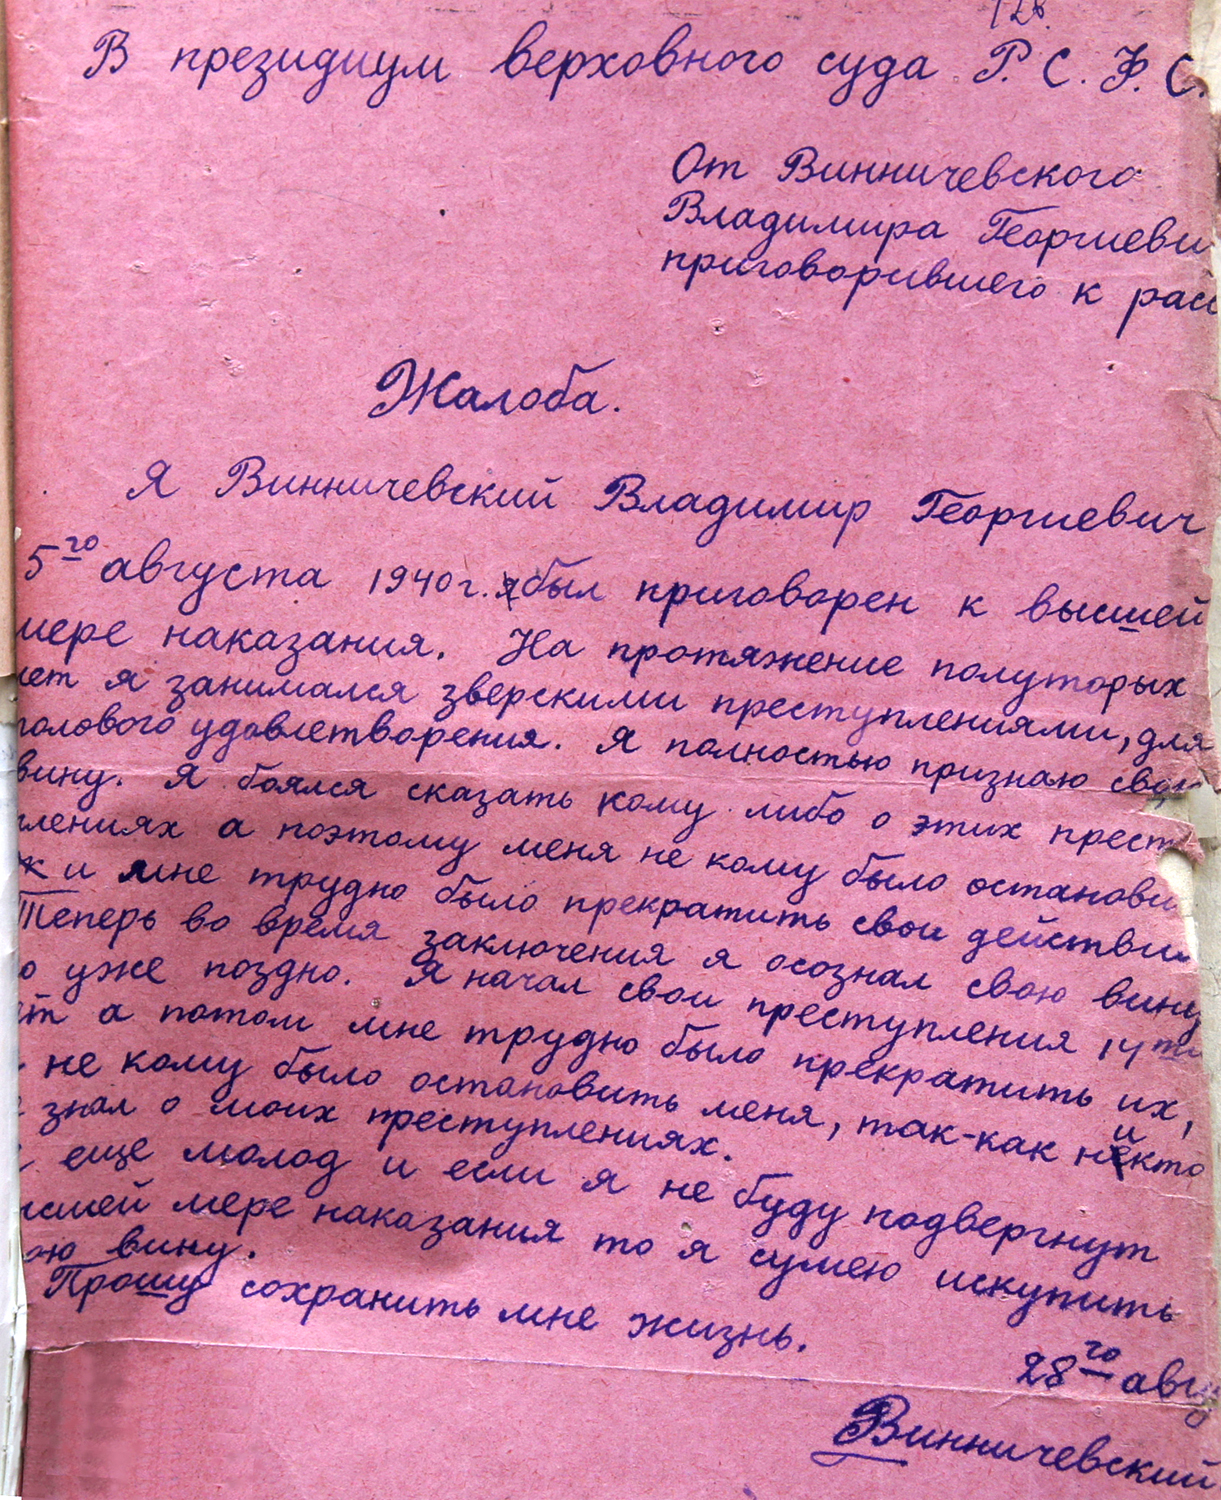 128.
В президиум верховного суда Р. С. Ф. С.
От Винничевского
Владимира Георгиеви
приговорившего к расс
Жалоба.
Я Винничевский Владимир Георгиевич
5го августа 1940 г. был приговорен к высшей
мере наказания. На протяжение полуторых
лет я занимался зверскими преступлениями, для
полового удовлетворения. Я полностью признаю свою
вину. Я боялся сказать кому либо о этих прест
плениях а поэтому меня не кому было останови
к и мне трудно было прекратить свои действи
Теперь во время заключения я осознал свою вину
о уже поздно. Я начал свои преступления 14ти
ет а потом мне трудно было прекратить их,
не кому было остановить меня, так-как никто
е знал о моих преступлениях.
еще молод и если я не буду подвергнут
ысшей мере наказания то я сумею искупить
ою вину.
Прошу сохранить мне жизнь.
28го авгу
Винничевский